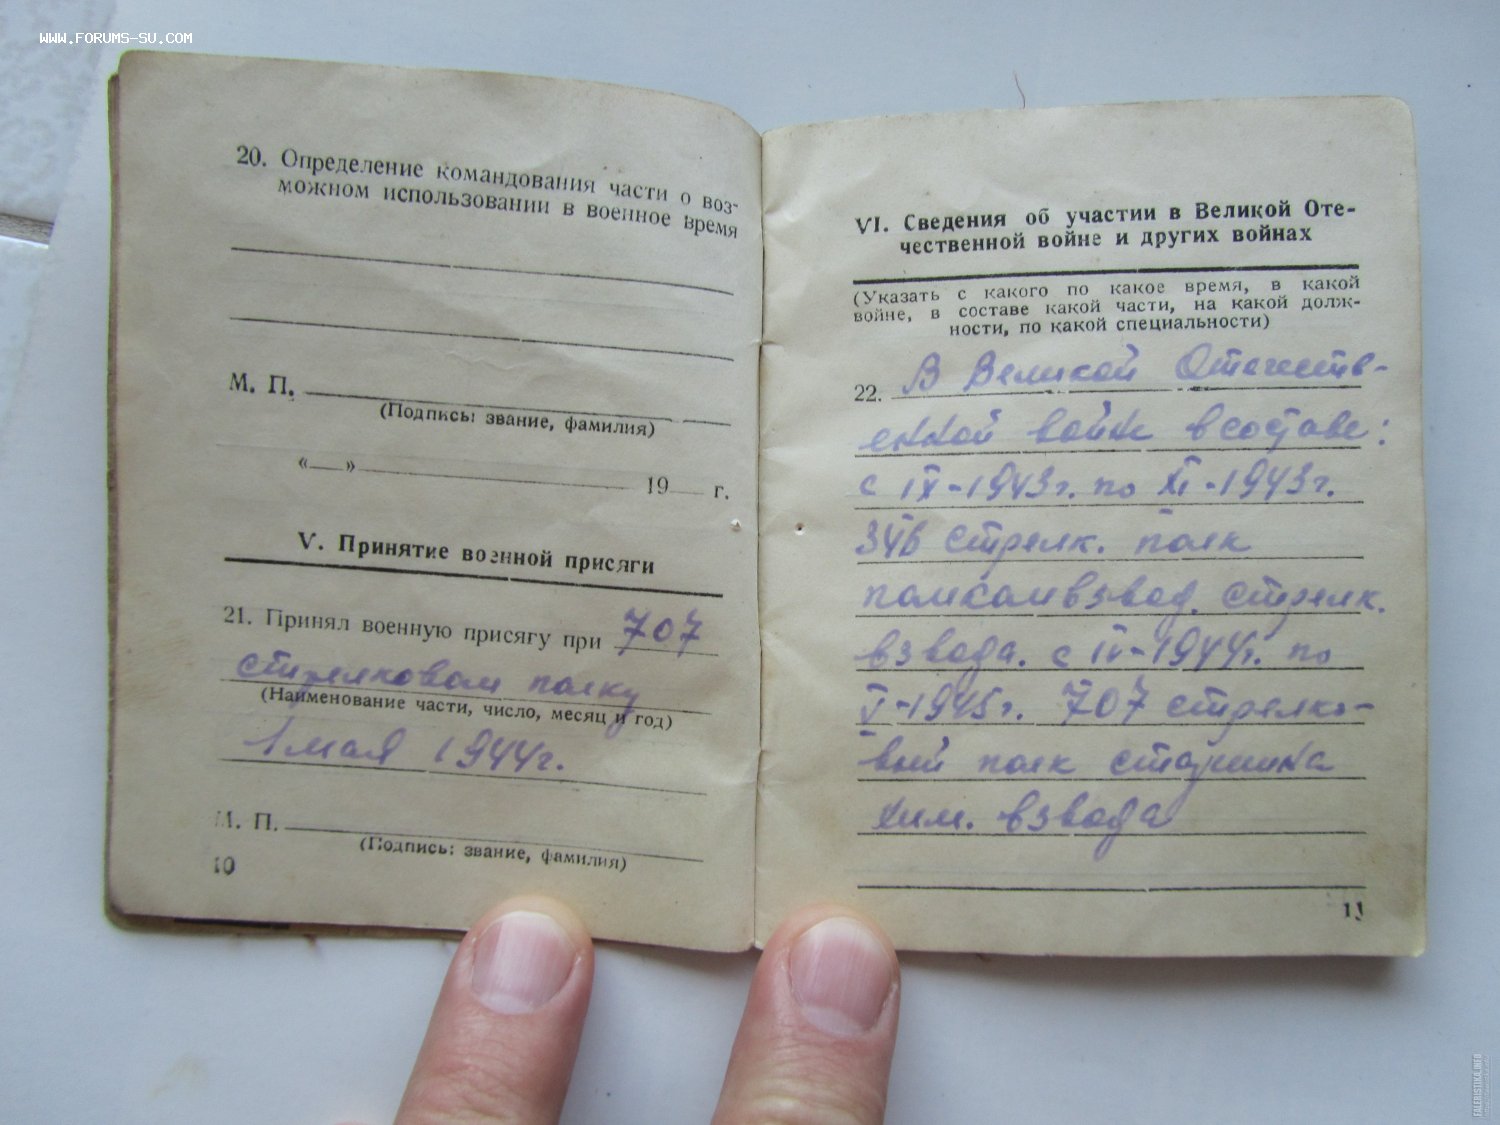 WWW.FORUMS-SU.COM
20. Определение командования части о воз-
можном использовании в военное время
М. П.
(Подпись: звание, фамилия)
« » 19 г.
V. Принятие военной присяги
21. Принял военную присягу при 707
стрелковом полку
(Наименование части, число, месяц и год)
1 мая 1944г.
М. П.
(Подпись: звание, фамилия)
10
VI. Сведения об участии в Великой Оте-
чественной войне и других войнах
(Указать с какого по какое время, в какой
войне, в составе какой части, на какой долж-
ности, по какой специальности)
22. В Великой Отечеств-
енной войне в составе:
с IX-1943г. по XI-1943г.
346 стрелк. полк
помкомвзвод. стрелк.
взвода. с IV-1944г. по
V-1945г. 707 стрелко-
вый полк старшина
хим. взвода
11
FALERISTIKA.INFO